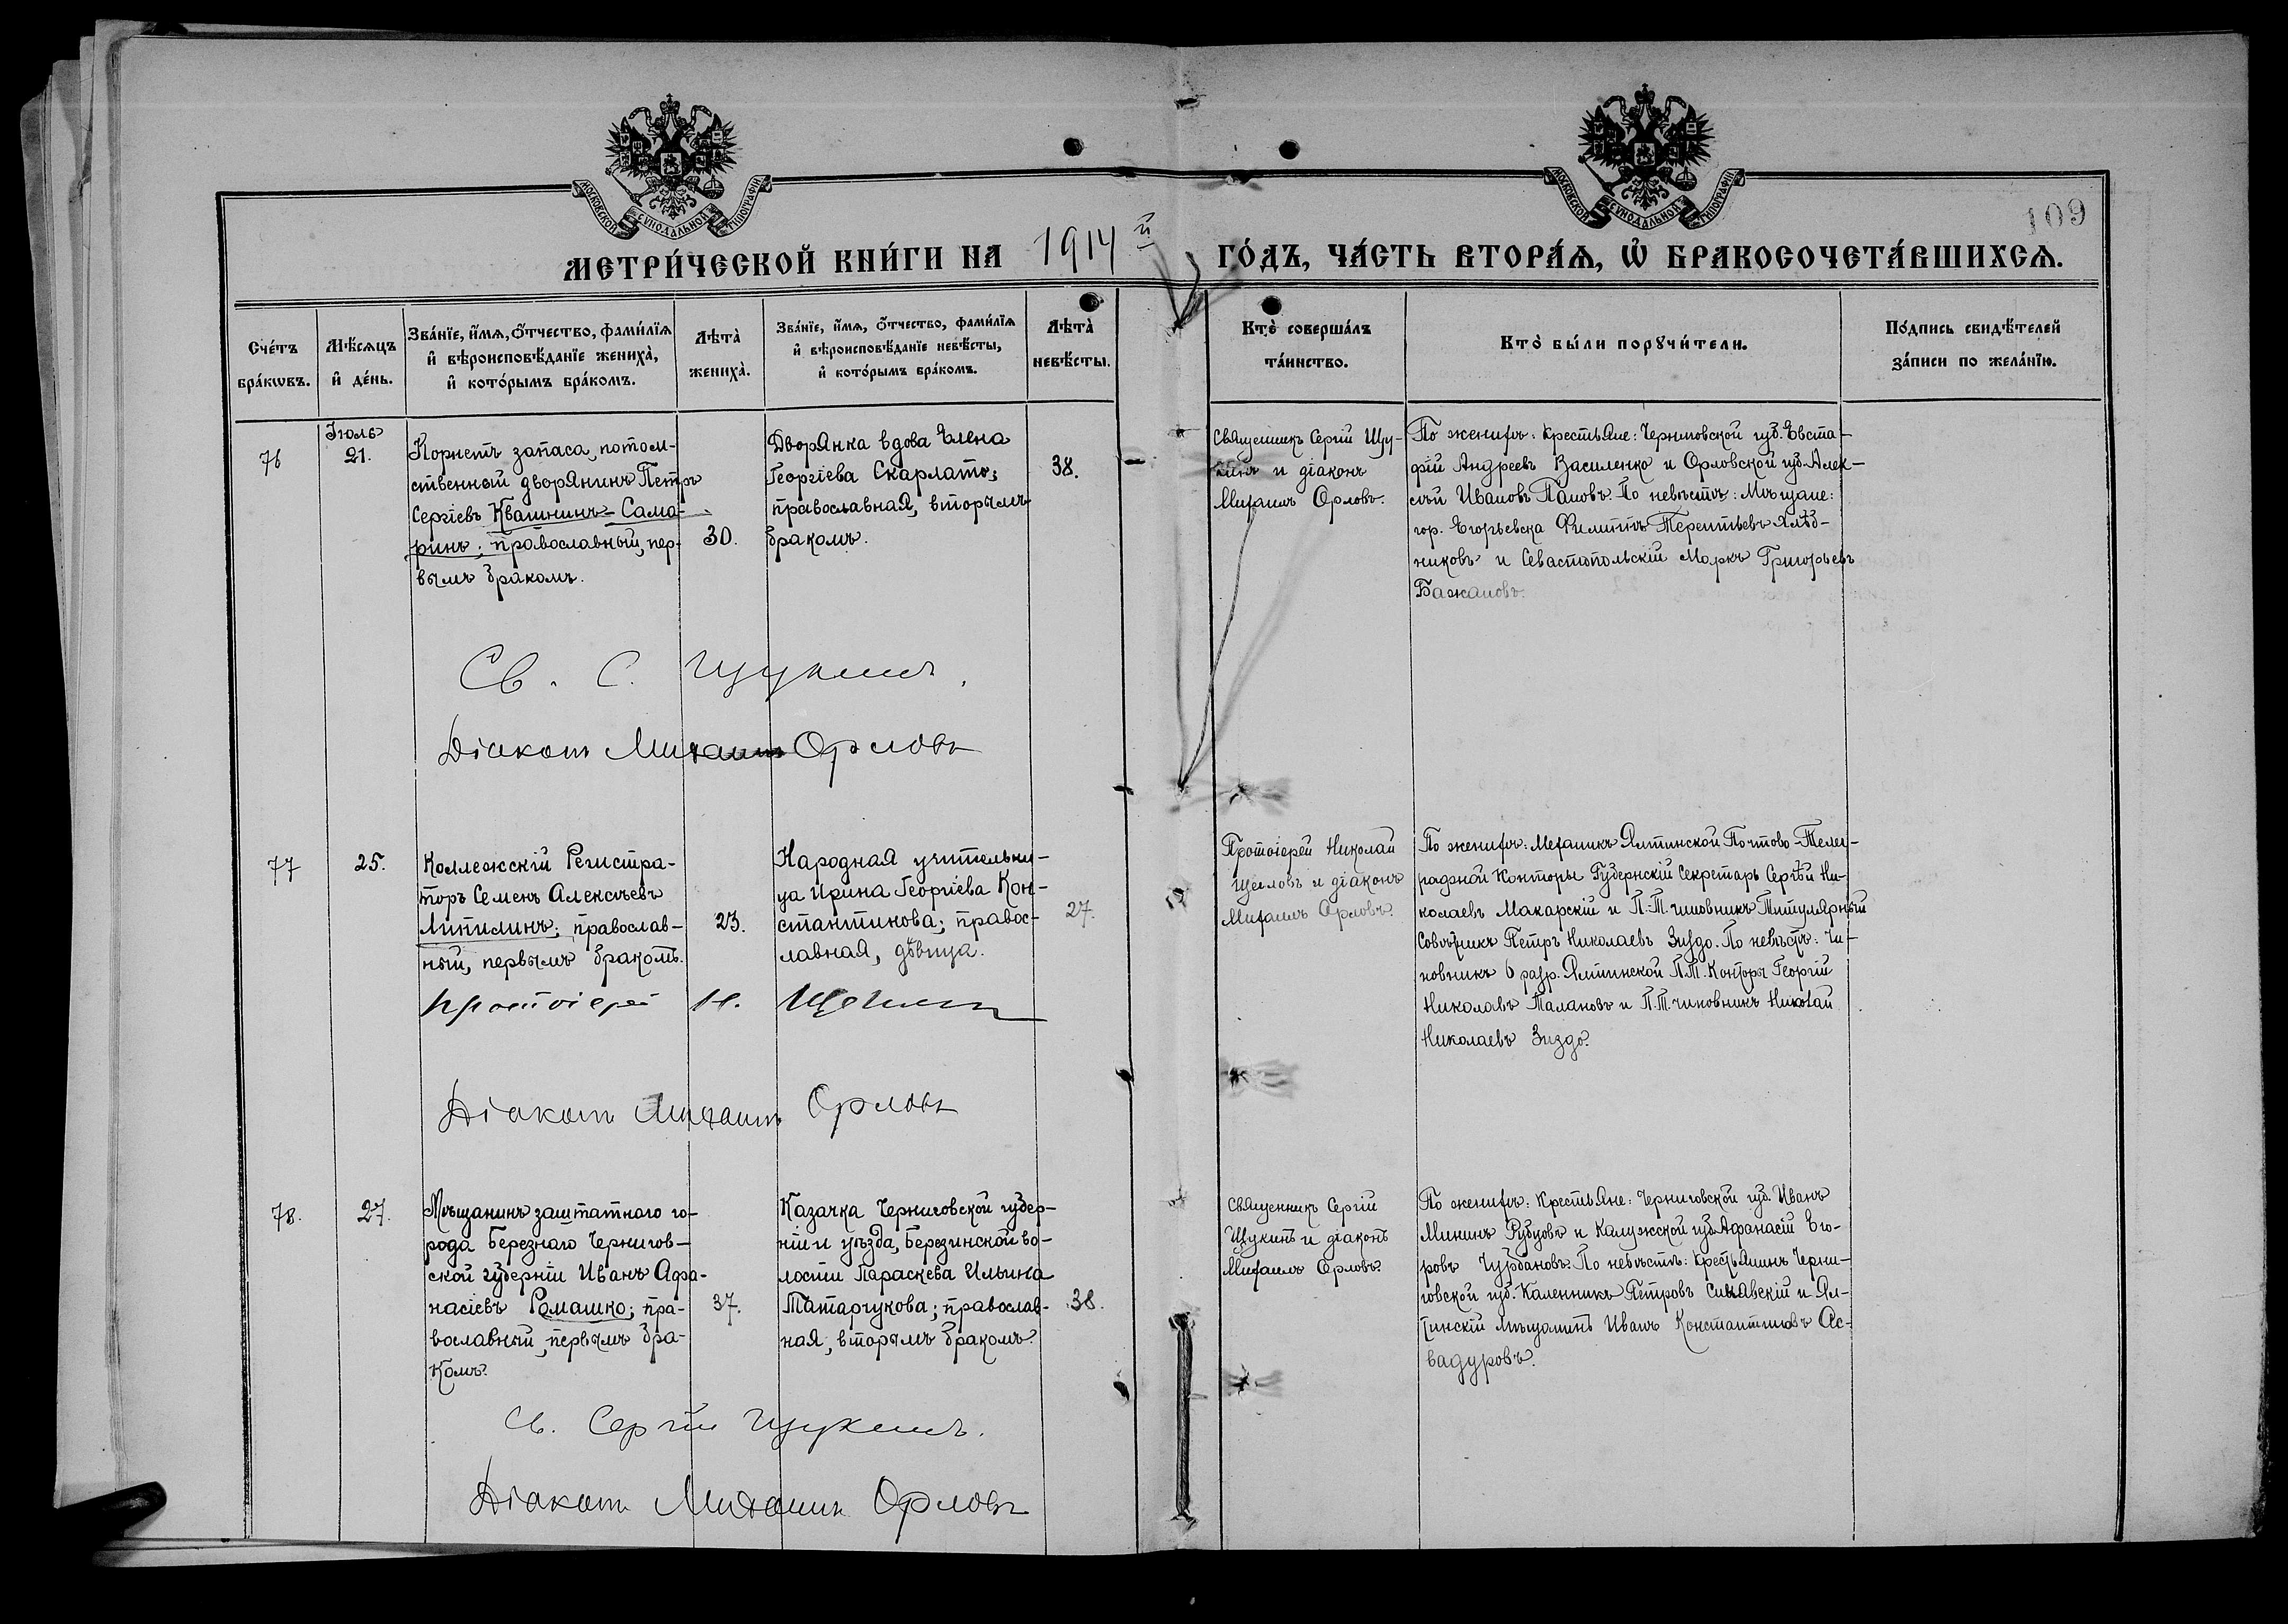 МОСКОВСКОЙ СѴНОДАЛЬНОЙ ТИПОГРАФІИ
МОСКОВСКОЙ СѴНОДАЛЬНОЙ ТИПОГРАФІИ
109
МЕТРИ́ЧЕСКОЙ КНИ́ГИ НА 1914й ГО́ДЪ, ЧА́СТЬ ВТОРА́Ѧ, Ѡ҆ БРАКОСОЧЕТА́ВШИХСѦ.
Сче́тъ
бра́кѡвъ.
Мѣ́сѧцъ
и҆ де́нь.
Зва́нїе, и҆́мѧ, ѻ҆́тчество, фами́лїѧ
и҆ вѣроисповѣ́данїе жениха̀,
и҆ кото́рымъ бра́комъ.
Лѣта̀
жениха̀.
Зва́нїе, и҆́мѧ, ѻ҆́тчество, фами́лїѧ
и҆ вѣроисповѣ́данїе невѣ́сты,
и҆ кото́рымъ бра́комъ.
Лѣта̀
невѣ́сты.
Кто̀ соверша́лъ
та́инство.
Кто̀ бы́ли порꙋчи́тели.
По́дпись свидѣ́телей
за́писи по жела́нїю.
76
Іюль
21.
Корнетъ запаса, потом-
ственный дворянинъ Петръ
Сергіевъ Квашнинъ-Сама-
ринъ; православный, пер-
вымъ бракомъ.
30.
Дворянка вдова Елена
Георгіева Скарлато;
православная, вторымъ
бракомъ.
38.
Священникъ Сергій Щу-
кинъ и діаконъ
Михаилъ Орловъ.
По женихѣ: крестьяне: Черниговской губ. Евста-
фій Андреевъ Василенко и Орловской губ. Алек-
сѣй Ивановъ Пановъ. По невѣстѣ: Мѣщане:
гор. Егорьевска Филиппъ Терентьевъ Хлѣб-
никовъ и Севастопольскій Маркъ Григорьевъ
Бажановъ.
Св. С. Щукинъ.
Діаконъ Михаилъ Орловъ
77
25.
Коллежскій Регистра-
торъ Семенъ Алексѣевъ
Липилинъ; православ-
ный, первымъ бракомъ.
23.
Народная учительни-
ца Ирина Георгіева Кон-
стантинова; правос-
лавная, дѣвица.
27.
Протоіерей Николай
Щегловъ и діаконъ
Михаилъ Орловъ.
По женихѣ: Механикъ Ялтинской Почтово-Телег-
рафной Конторы Губернскій Секретарь Сергѣй Ни-
колаевъ Макарскій и П.-Т. чиновникъ Титулярный
Совѣтникъ Петръ Николаевъ Зиздо. По невѣстѣ: Чи-
новникъ 6 разр. Ялтинской П.Т. Конторы Георгій
Николаевъ Талановъ и П.Т. чиновникъ Николай
Николаевъ Зиздо.
Протоіерей Н. Щегловъ
Діаконъ Михаилъ Орловъ
78.
27.
Мѣщанинъ заштатного го-
рода Березнаго Чернигов-
ской губерніи Иванъ Афа-
насіевъ Ромашко; пра-
вославный, первымъ бра-
комъ.
37.
Казачка Черниговской губер-
ніи и уѣзда, Березинской во-
лости Параскева Ильина
Татарчукова; православ-
ная, вторымъ бракомъ.
38.
Священникъ Сергій
Щукинъ и діаконъ
Михаилъ Орловъ.
По женихѣ: Крестьяне: Черниговской губ. Иванъ
Мининъ Рубцовъ и Калужской губ. Афанасій Его-
ровъ Чурбановъ. По невѣстѣ: Крестьянинъ Черни-
говской губ. Каленникъ Петровъ Синявскій и Ял-
тинскій мѣщанинъ Иванъ Константиновъ Ас-
вадуровъ.
Св. Сергій Щукинъ.
Діаконъ Михаилъ Орловъ